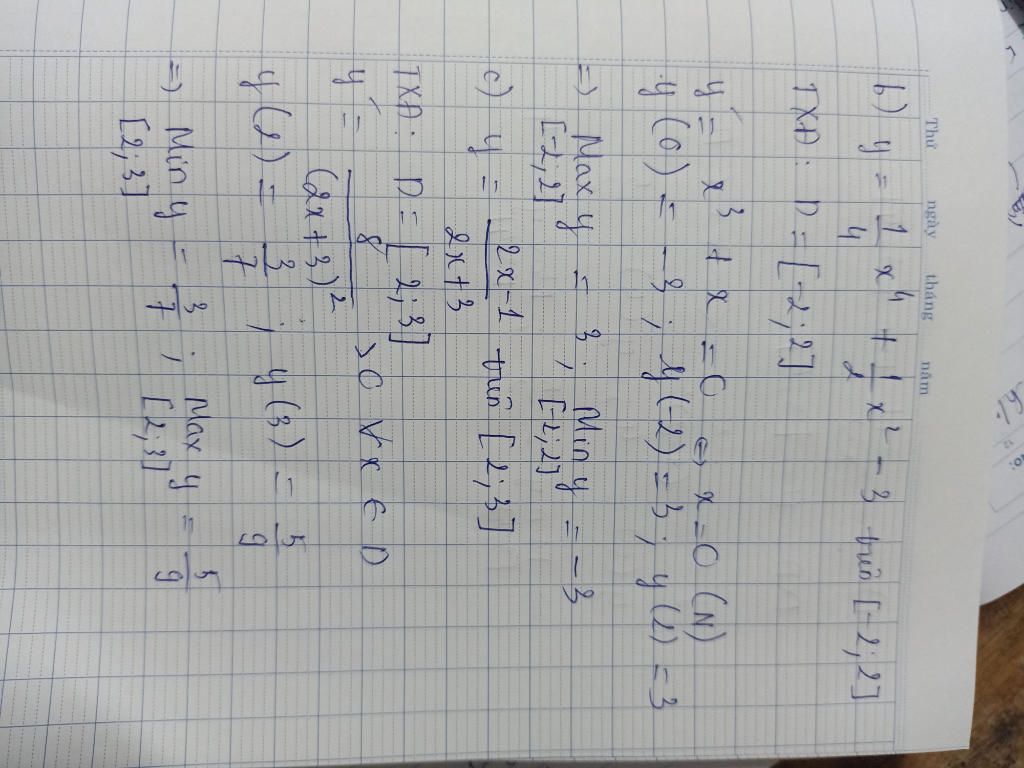 Thứ ngày tháng năm
b) y = 1/4 x⁴ + 1/2 x² - 3 trên [-2;2]
TXĐ: D = [-2;2]
y' = x³ + x = 0 ⇔ x = 0 (N)
y(0) = -3 ; y(-2) = 3 ; y(2) = 3
=> Max y = 3 ; Min y = -3
[-2;2] [-2;2]
c) y = 2x-1/2x+3 trên [2;3]
TXĐ: D = [2;3]
y' = 8/(2x+3)² >0 ∀x ∈ D
y(2) = 3/7 ; y(3) = 5/9
=> Min y = 3/7 ; Max y = 5/9
[2;3] [2;3]